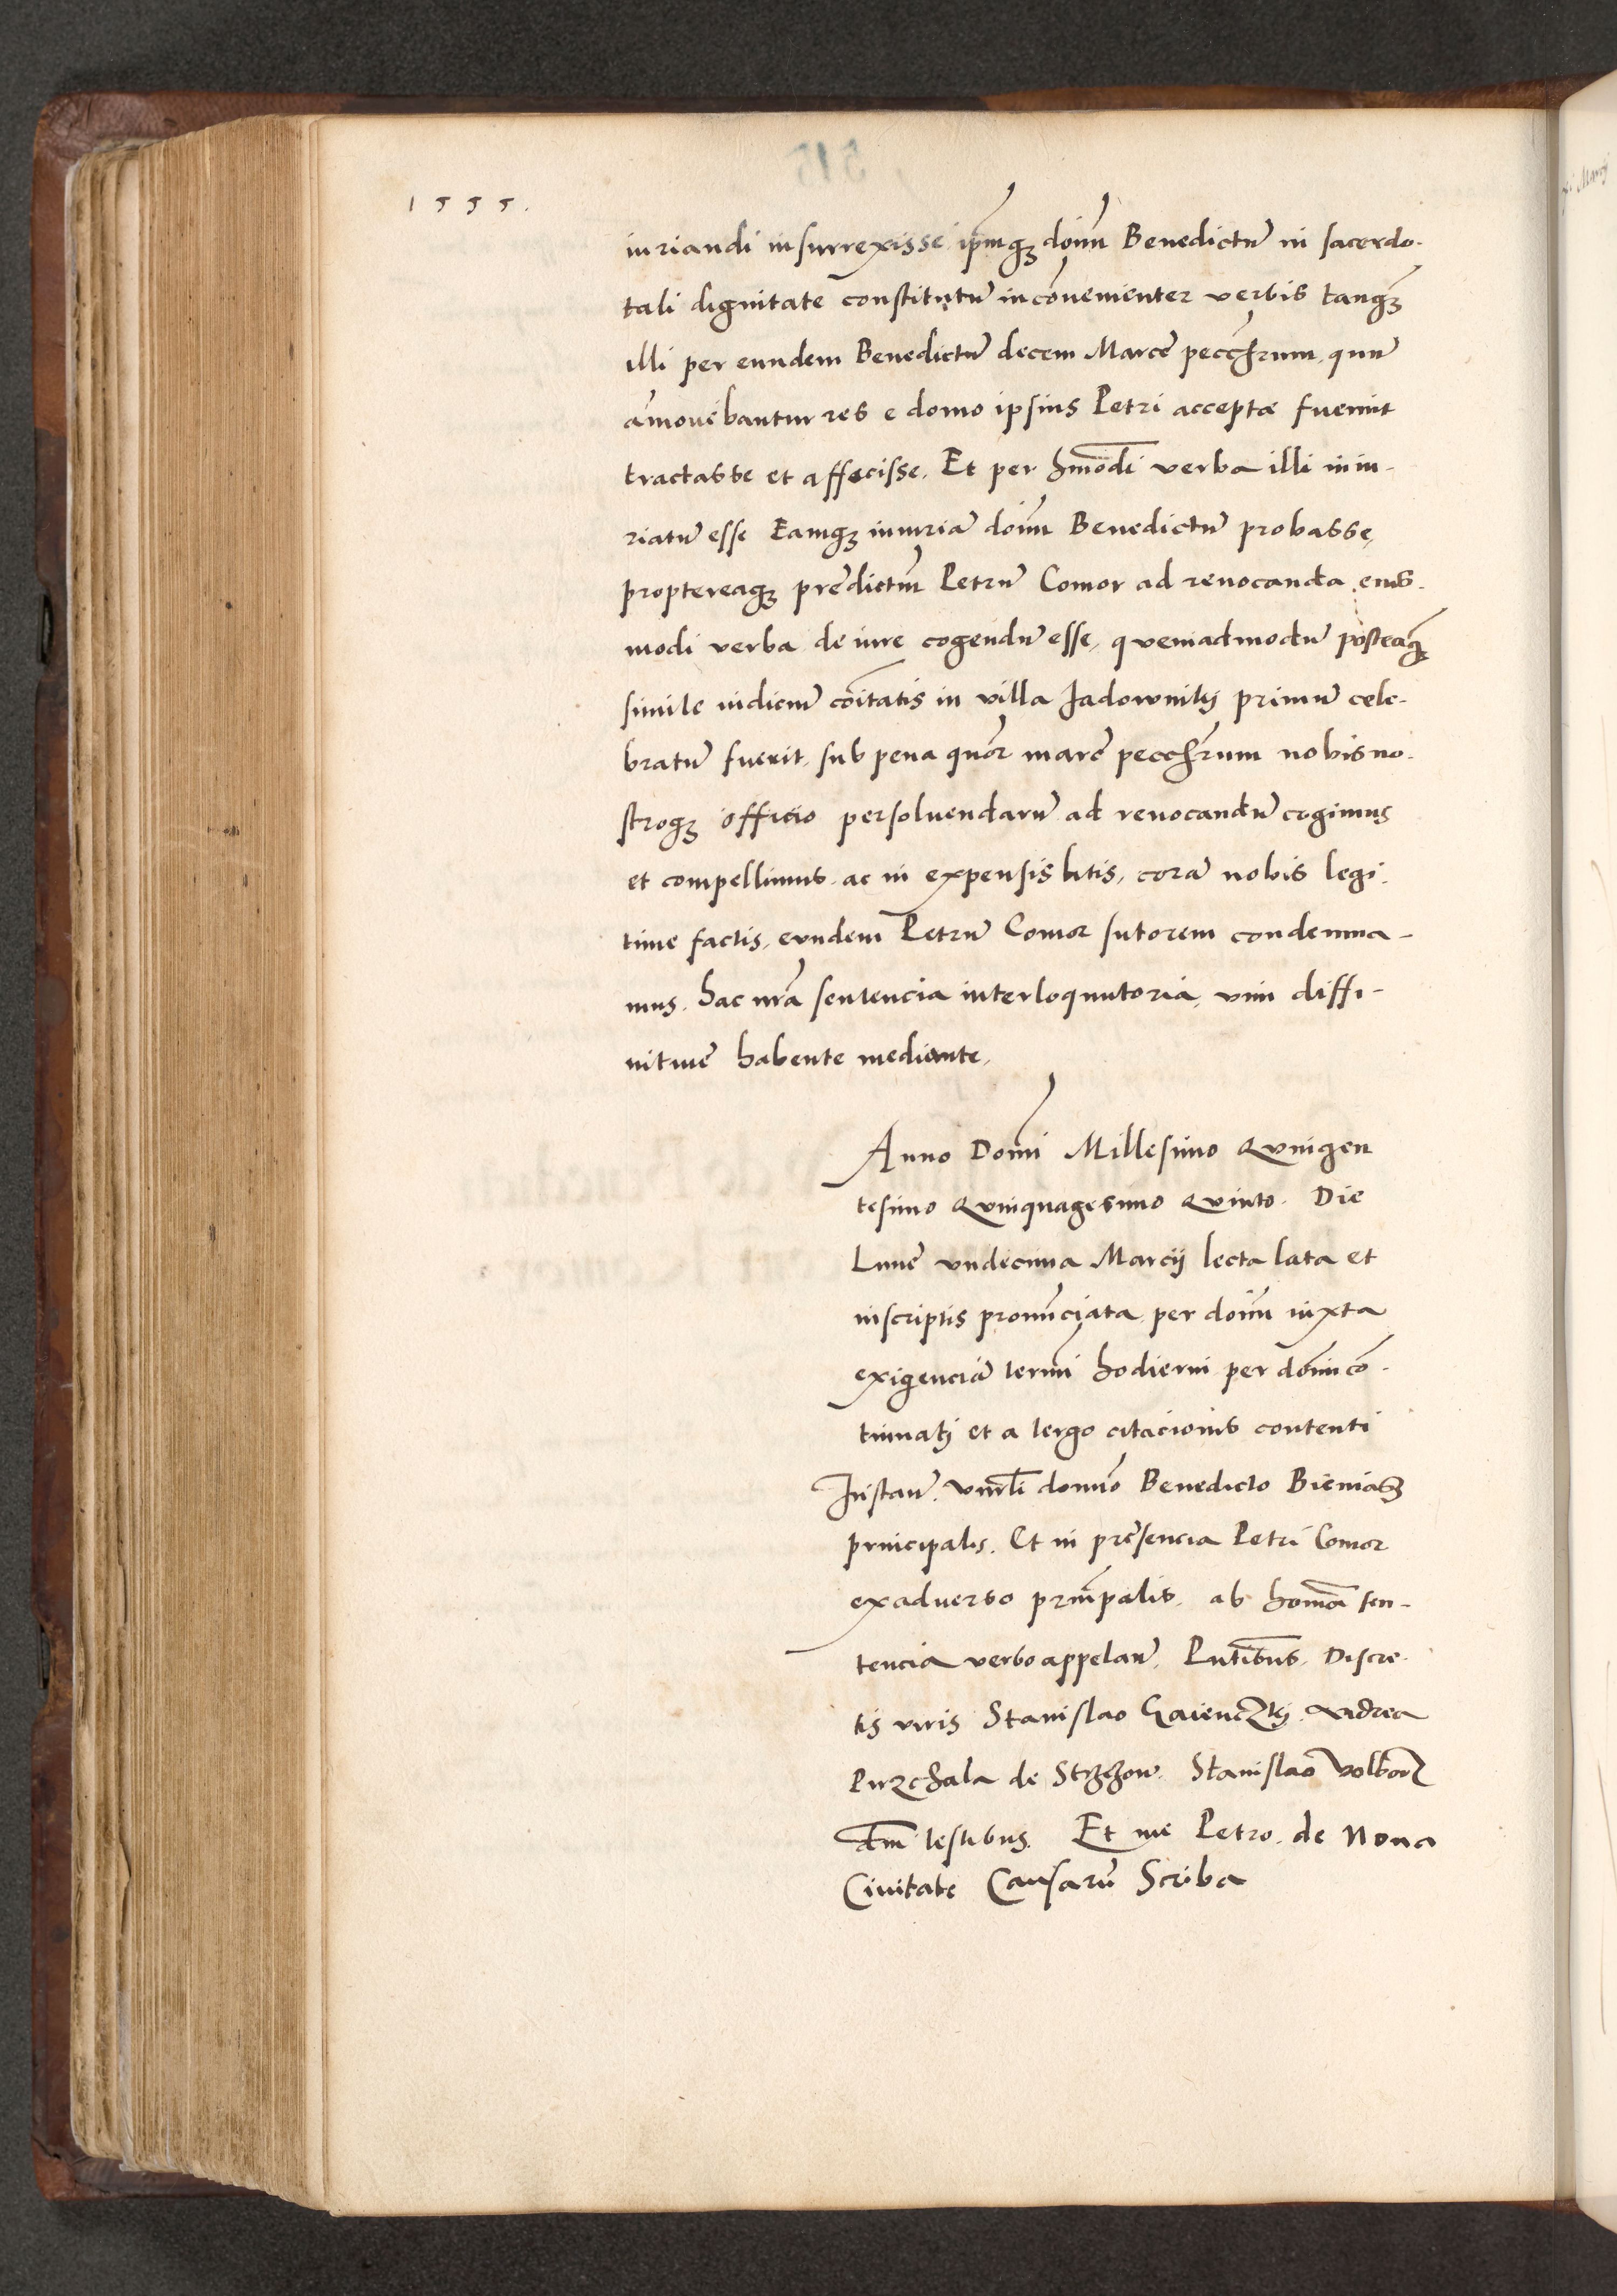 1555.
iuriandi insurrexisse ip̄mq3 don̄m Benedictū in sacerdo-
tali dignitate constitutū incōuenienter verbis tanq̄3
illi per eundem Benedictū decem Marcē pecc̄hrum, quū
amouebantur res e domo ipsius Petri acceptæ fuerint
tractasse et affecisse. Et per hmōdi verba illi iniu-
riatū esse Eamq3 iniuriā don̄m Benedictū probasse,
proptereaq3 prēdictum Petrū Comor ad reuocanda eius-
modi verba de iure cogendū esse, quemadmodū posteaq̄3
simile iudiciū cōitatis in villa Jadowniky primū cele-
bratū fuerit, sub pena quōr marc̄ pecc̄hrum nobis no-
stroq3 officio persoluendarū ad reuocandū cogimus
et compellimus, ac in expensis litis, corā nobis legi-
time factis, eundem Petrū Comor sutorem condemna-
mus. hac nr̄a sentencia interloquutoria, vim diffi-
nitiuē habente mediante,
Anno Domī Millesimo Quingen
tesimo Quinquagesimo Quinto. Die
Lunē vndecima Marcij lecta lata et
inscriptis pronunciata per don̄m iuxta
exigenciā termī hodierni per don̄m cō-
tinuatj et a tergo citacionis contenti
Instan̄. vn̄rli domno Benedicto Bieniasz
principalis. Et in presencia Petri Comor
exaduerso princ̄palis, ab hm̄oi sen-
tencia verbo appelan̄. Pn̄tibus. Discre-
tis viris Stanislao Andrea
Purzchala de Stanislao
testibus. Et me Petro de Noua
Ciuitate Causarū Scriba